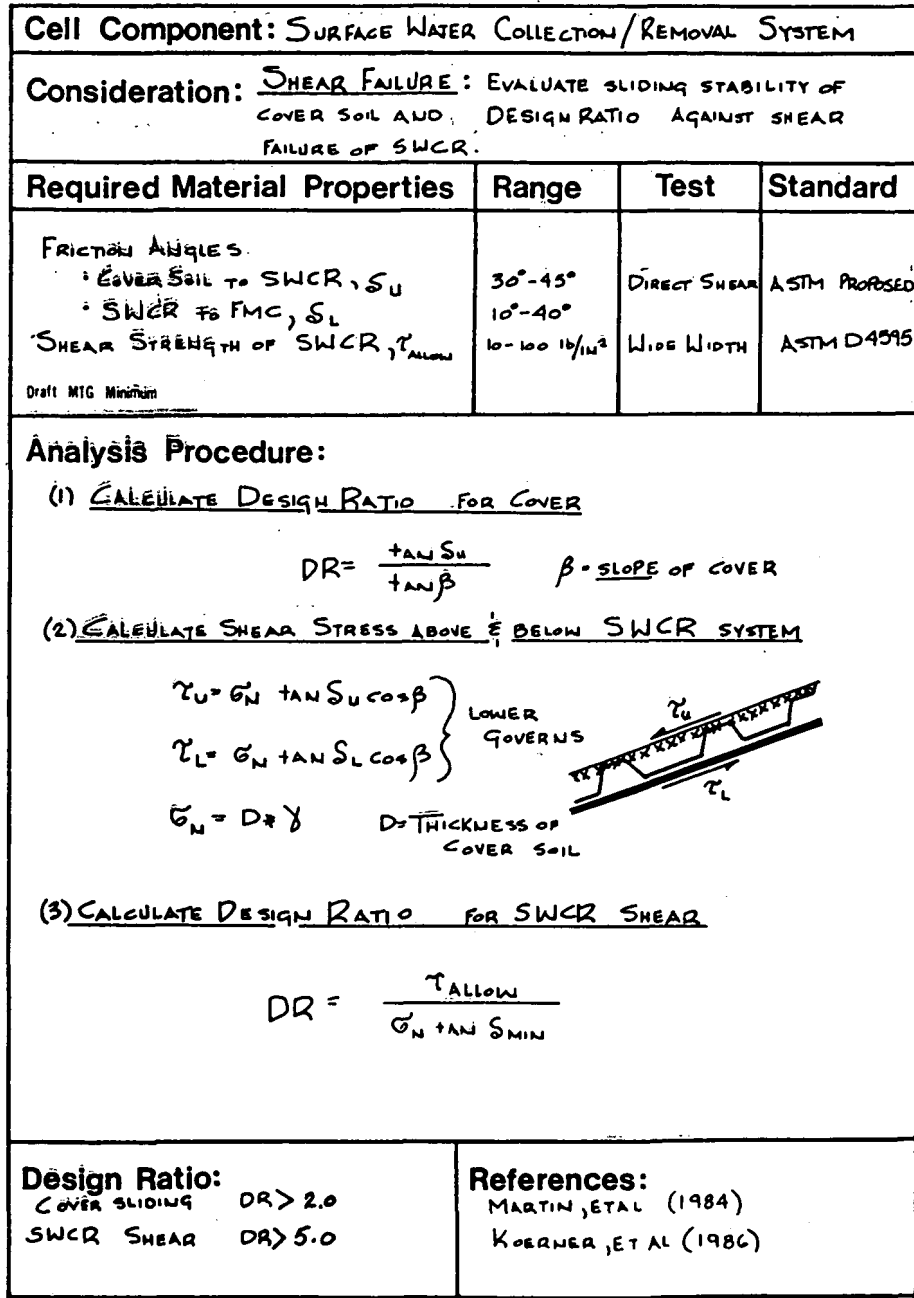 Cell Component: SURFACE WATER COLLECTION/REMOVAL SYSTEM
Consideration: SHEAR FAILURE: EVALUATE SLIDING STABILITY OF
COVER SOIL AND DESIGN RATIO AGAINST SHEAR
FAILURE OF SWCR.
Required Material Properties Range Test Standard
FRICTION ANGLES
• COVER SOIL TO SWCR, δU 30°-45° DIRECT SHEAR ASTM PROPOSED
• SWCR TO FMC, δL 10°-40°
SHEAR STRENGTH OF SWCR, τALLOW 10-100 lb/IN² WIDE WIDTH ASTM D4595
Draft MTG Minimum
Analysis Procedure:
(1) CALCULATE DESIGN RATIO FOR COVER
DR = tAN δu / tAN β β = SLOPE OF COVER
(2) CALCULATE SHEAR STRESS ABOVE & BELOW SWCR SYSTEM
τU = σN tAN δU cosβ
τL = σN tAN δL cosβ
LOWER
GOVERNS
σN = D * γ D = THICKNESS OF
COVER SOIL
τU
τL
(3) CALCULATE DESIGN RATIO FOR SWCR SHEAR
DR = τALLOW / σN tAN δMIN
Design Ratio:
COVER SLIDING DR > 2.0
SWCR SHEAR DR > 5.0
References:
MARTIN, ET AL (1984)
KOERNER, ET AL (1986)